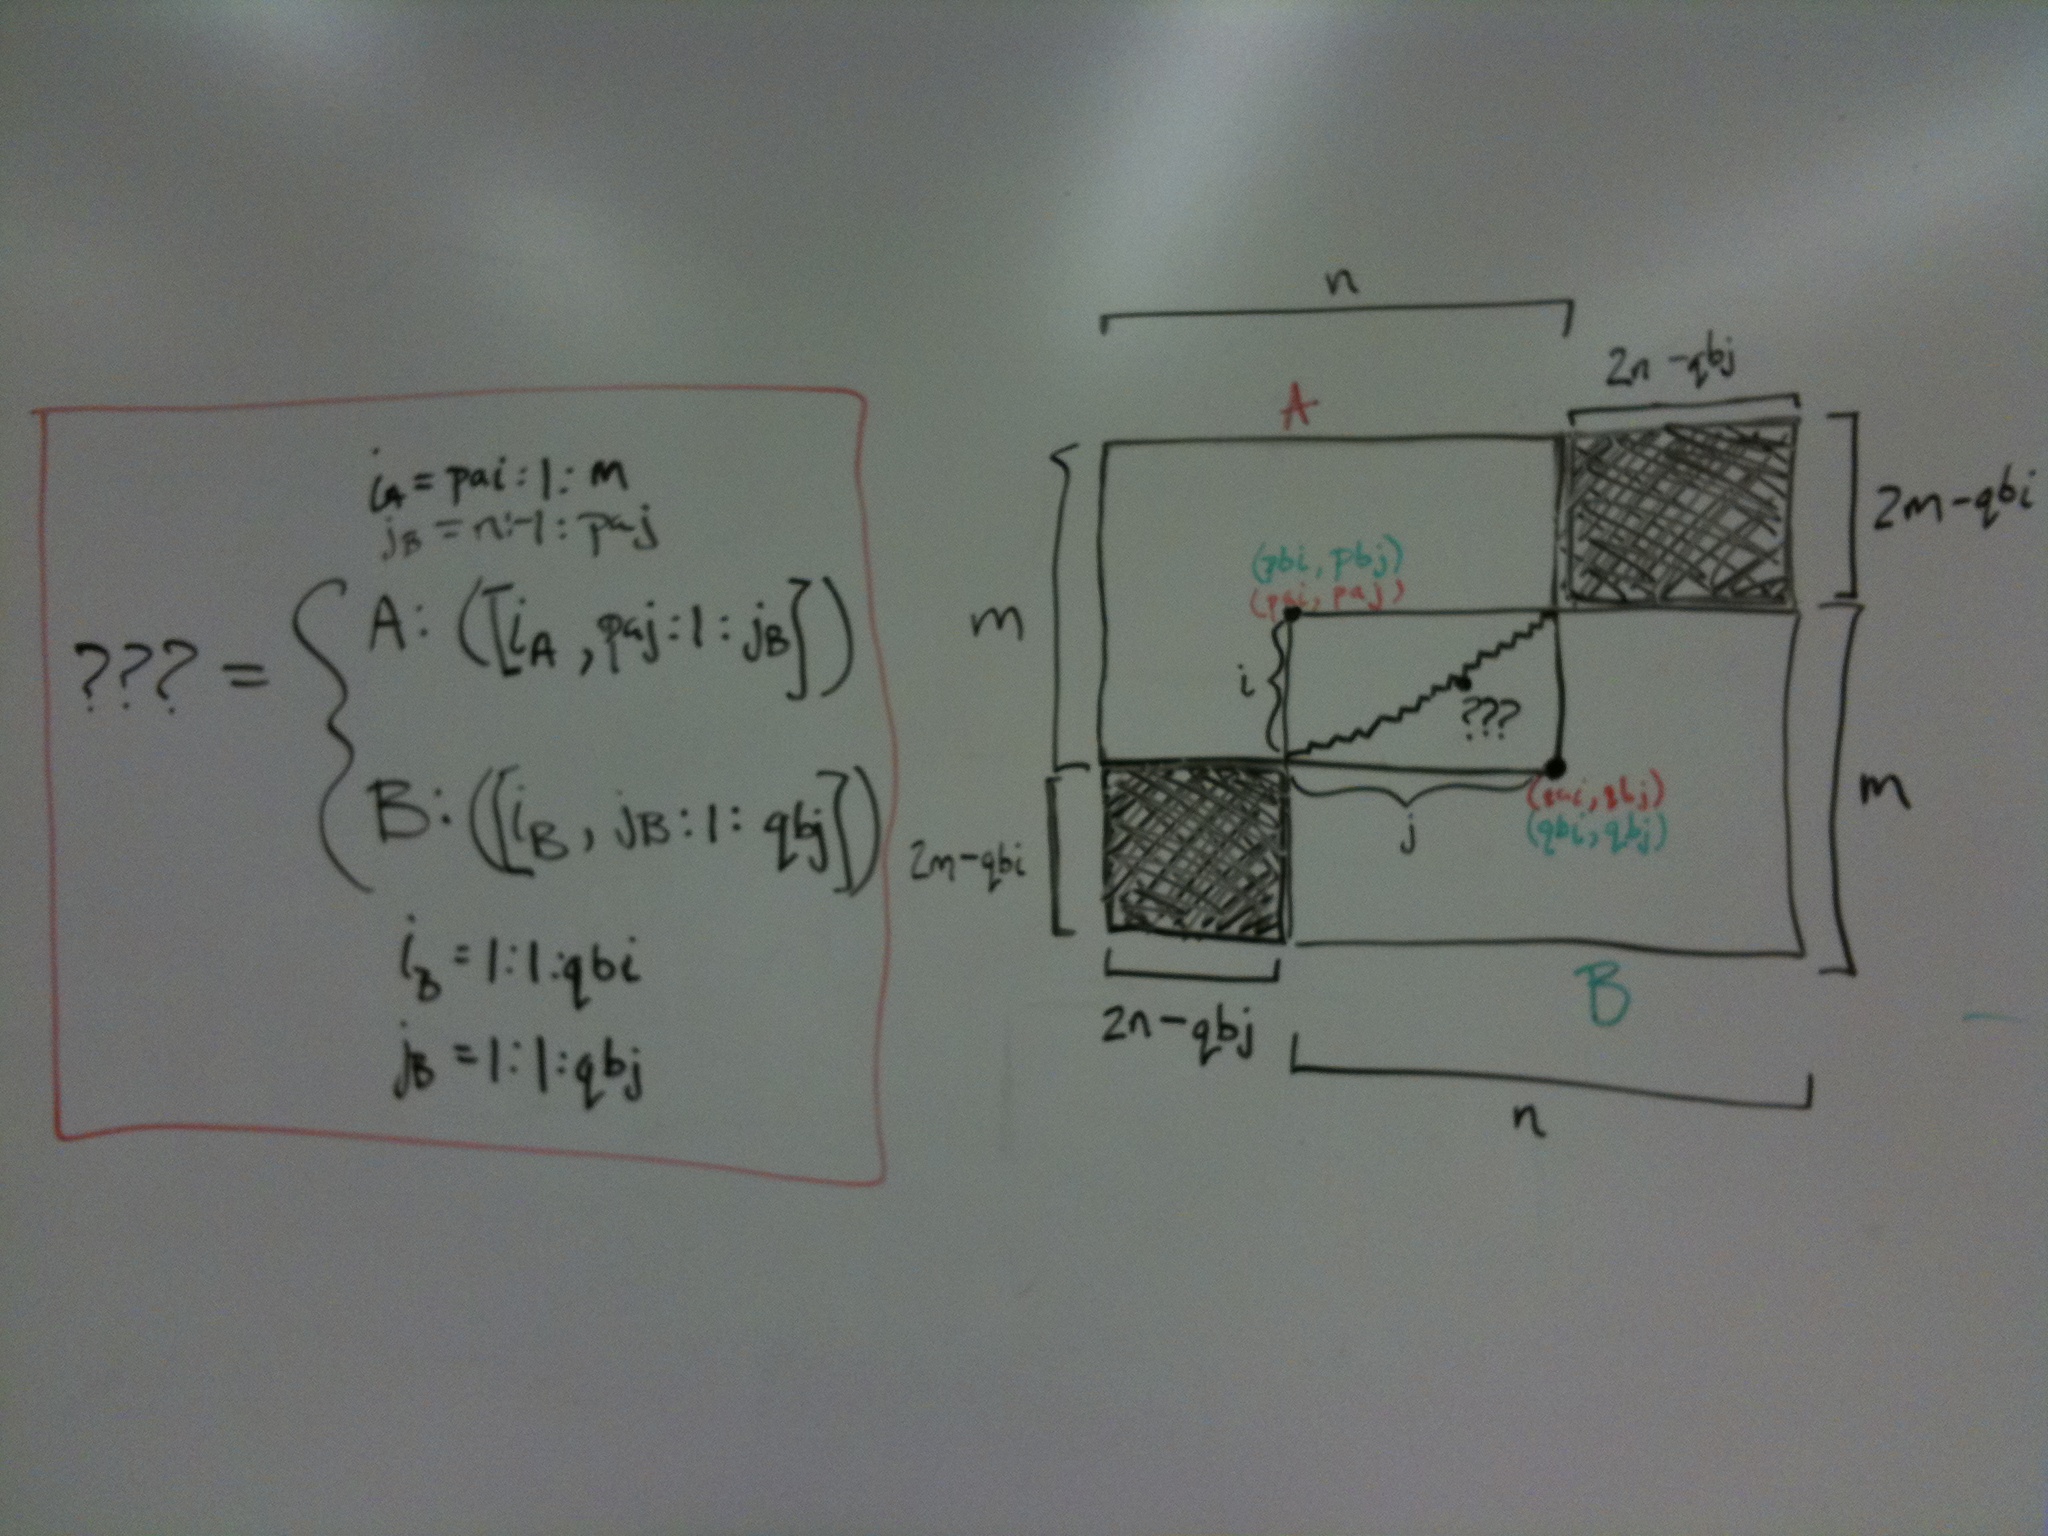 i_A = pai:1:m
j_B = n:-1:paj
??? = {
A: ([i_A, paj:1:j_B])
B: ([i_B, j_B:1:qbj])
i_B = 1:1:qbi
j_B = 1:1:qbj
n
2n-qbj
A
2m-qbi
(pbi, pbj)
(pai, paj)
m
i
???
(qai, qbj)
(qbi, qbj)
j
m
2m-qbi
B
2n-qbj
n